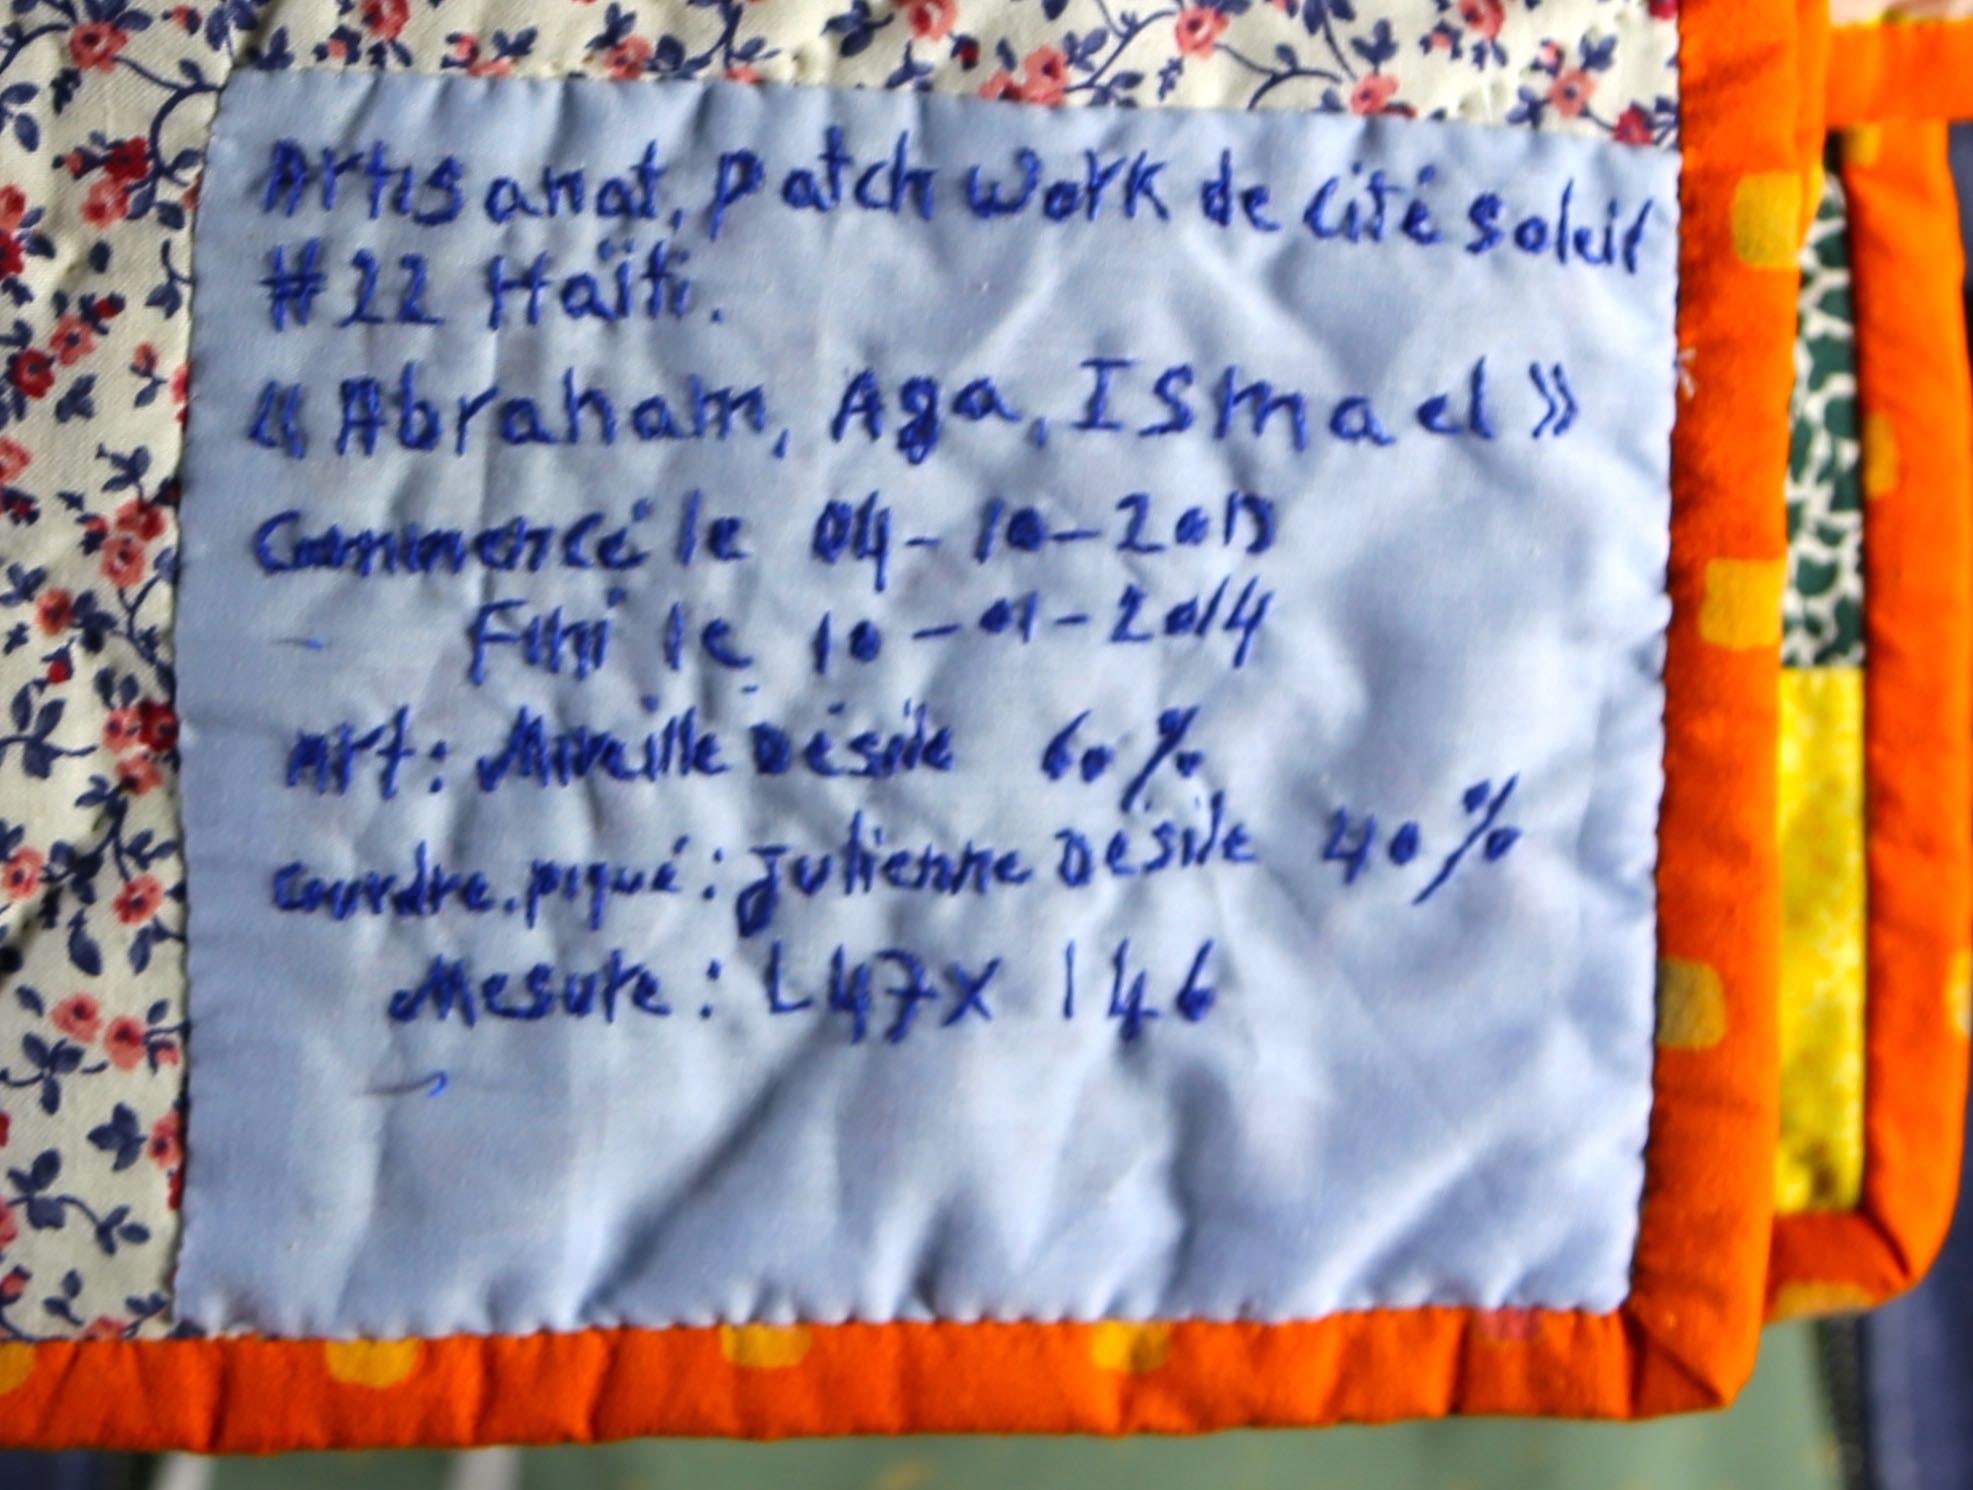 Artisanat, patch work de cité soleil
#22 Haïti.
« Abraham, Aga, ISmael »
Commencé le 04-10-2013
Fini le 10-01-2014
Art: Mireille Désile 60%
coudre.piqué: Julienne Désile 40%
Mesure: L47x l46